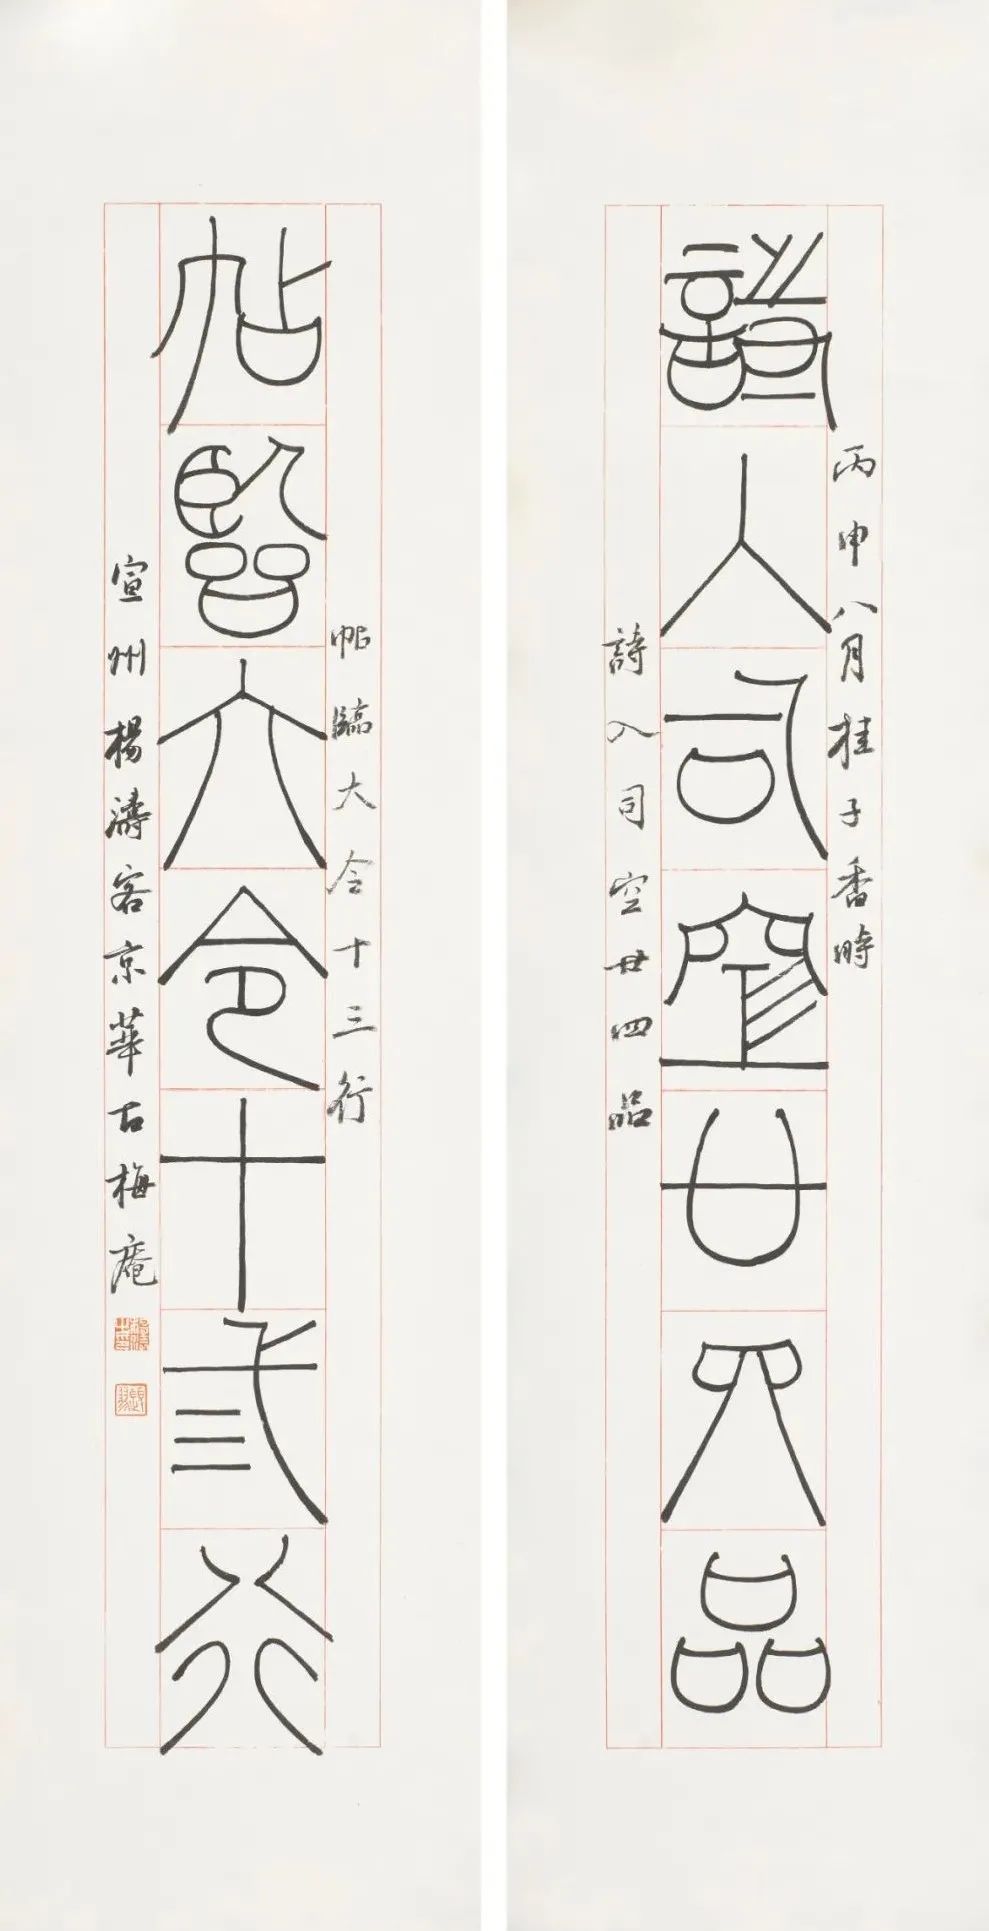 丙申八月桂子香時
詩入司空廿四品
詩入司空廿四品
帖臨大令十三行
帖臨大令十弎行
宣州楊濤客京華古梅庵